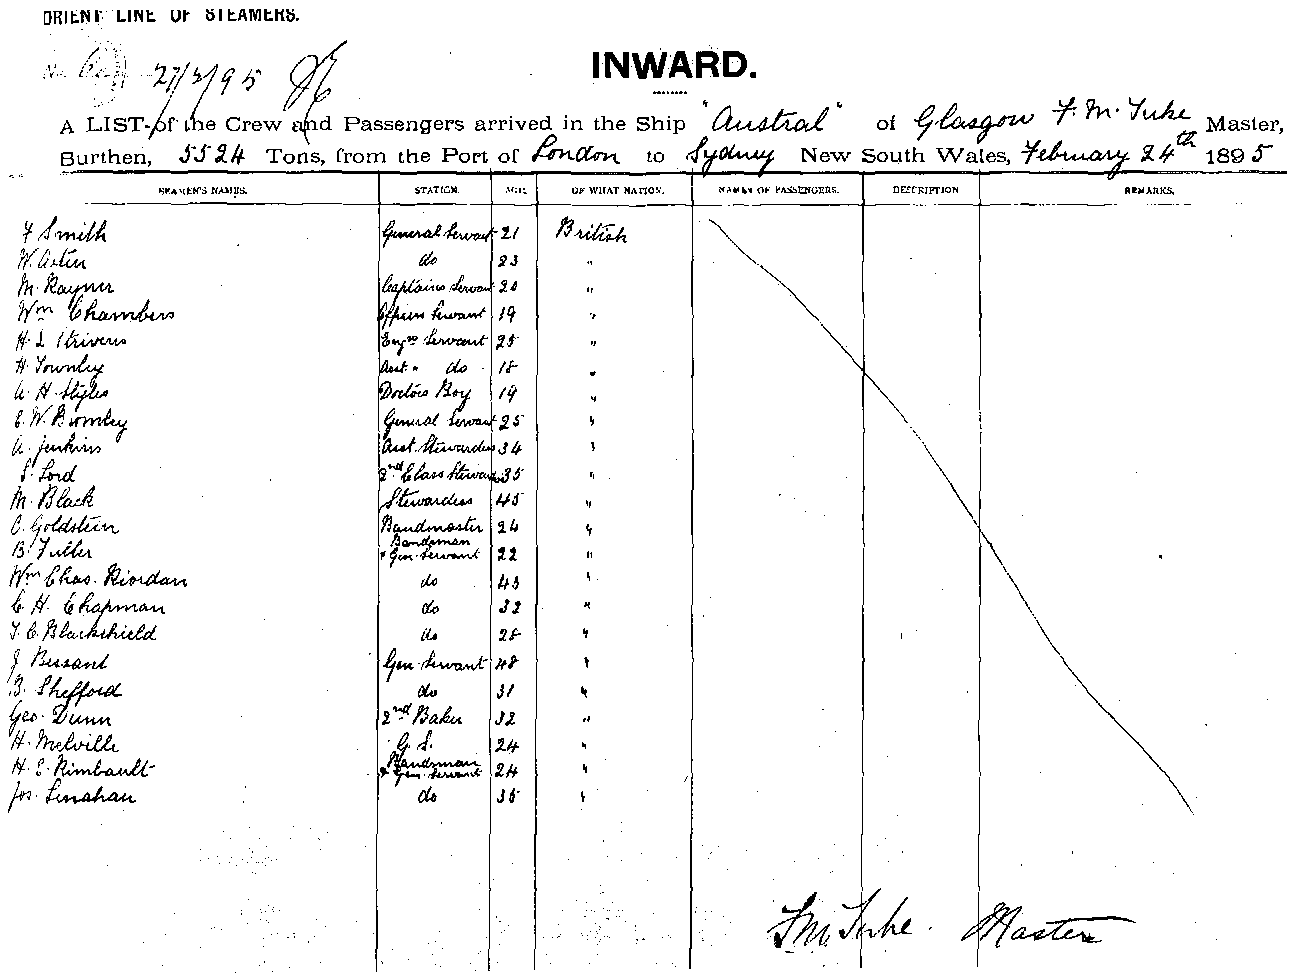 ORIENT LINE OF STEAMERS.
27/2/95
INWARD.
A LIST of the Crew and Passengers arrived in the Ship "Austral" of Glasgow F. M. Tuke Master,
Burthen, 5524 Tons, from the Port of London to Sydney New South Wales, February 24th 1895
SEAMEN'S NAMES. STATION. AGE. OF WHAT NATION. NAMES OF PASSENGERS. DESCRIPTION REMARKS.
F Smith General Servant 21 British
W. do 23 "
M. Rayner Captains Servant 20 "
Wm Chambers Officers Servant 19 "
H. I. Strivens Engrs Servant 25 "
H. Townley Asst " do 18 "
A. H. Styles Doctors Boy 19 "
E. W. Bromley General Servant 25 "
A. Jenkins Asst Stewardess 34 "
S. Lord 2nd Class Stewardess 35 "
M. Black Stewardess 45 "
C. Goldstein Bandmaster 24 "
B. Fuller Bandsman & Gen. Servant 22 "
Wm Chas. Riordan do 43 "
C. H. Chapman do 32 "
T. C. Blackshield do 28 "
J. Bessant Gen. Servant 48 "
B. Shefford do 31 "
Geo. Dunn 2nd Baker 32 "
H. Melville G. S. 24 "
H. E. Rimbault Bandsman & Gen. Servant 24 "
Jos. Linahan do 35 "
F. M. Tuke. Master